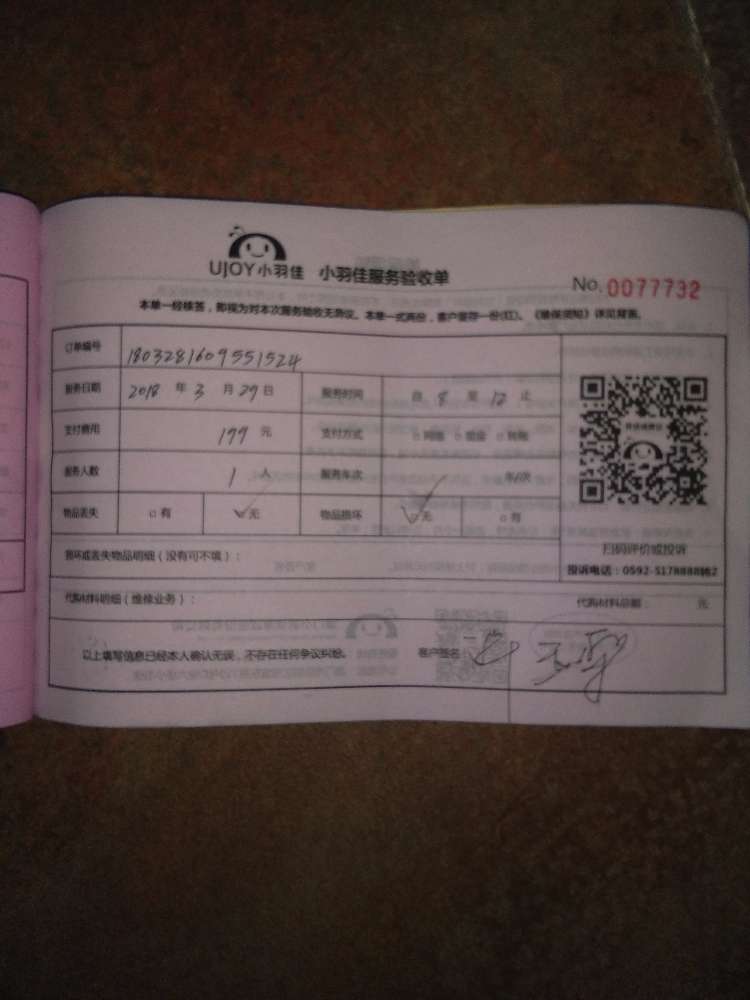 UJOY小羽佳 小羽佳服务验收单
No. 0077732
本单一经核答，即视为对本次服务验收无异议。本单一式两份，客户留存一份(红)、《维保须知》详见背面。
订单编号 1803281609551524
服务日期 2018 年 3 月 29 日 服务时间 自 8 至 12 止
支付费用 199 元 支付方式 □网络 □现金 □转账
服务人数 1 人 服务车次 车/次
物品丢失 □有 ✓无 物品损坏 ✓无 □有
扫码评价或投诉
损坏或丢失物品明细（没有可不填）：
投诉电话：0592-5178888转2
代购材料明细（维修业务）： 代购材料总额： 元
以上填写信息已经本人确认无误，不存在任何争议纠纷。 客户签名：